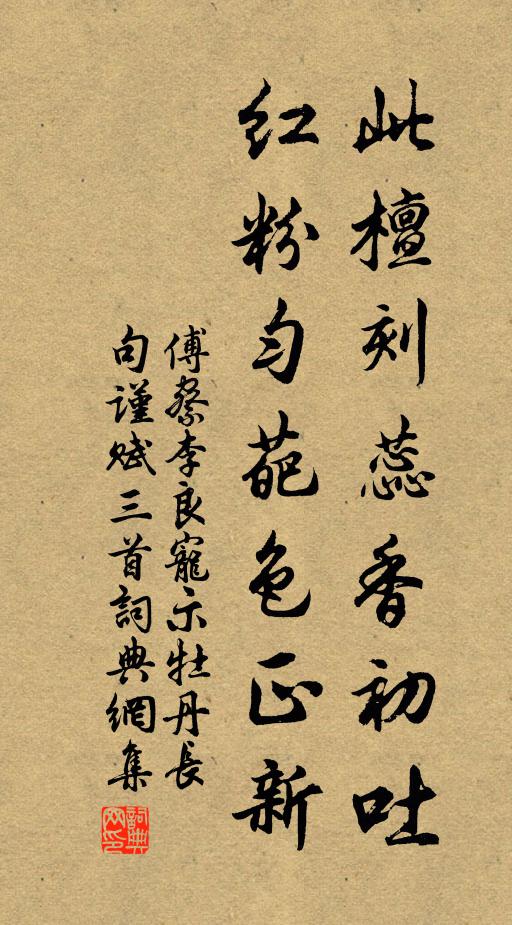 此檀刻蕊香初吐
红粉匀葩色正新
傅察李良寵示牡丹長
句謹赋三首詞典網集
詞典网印